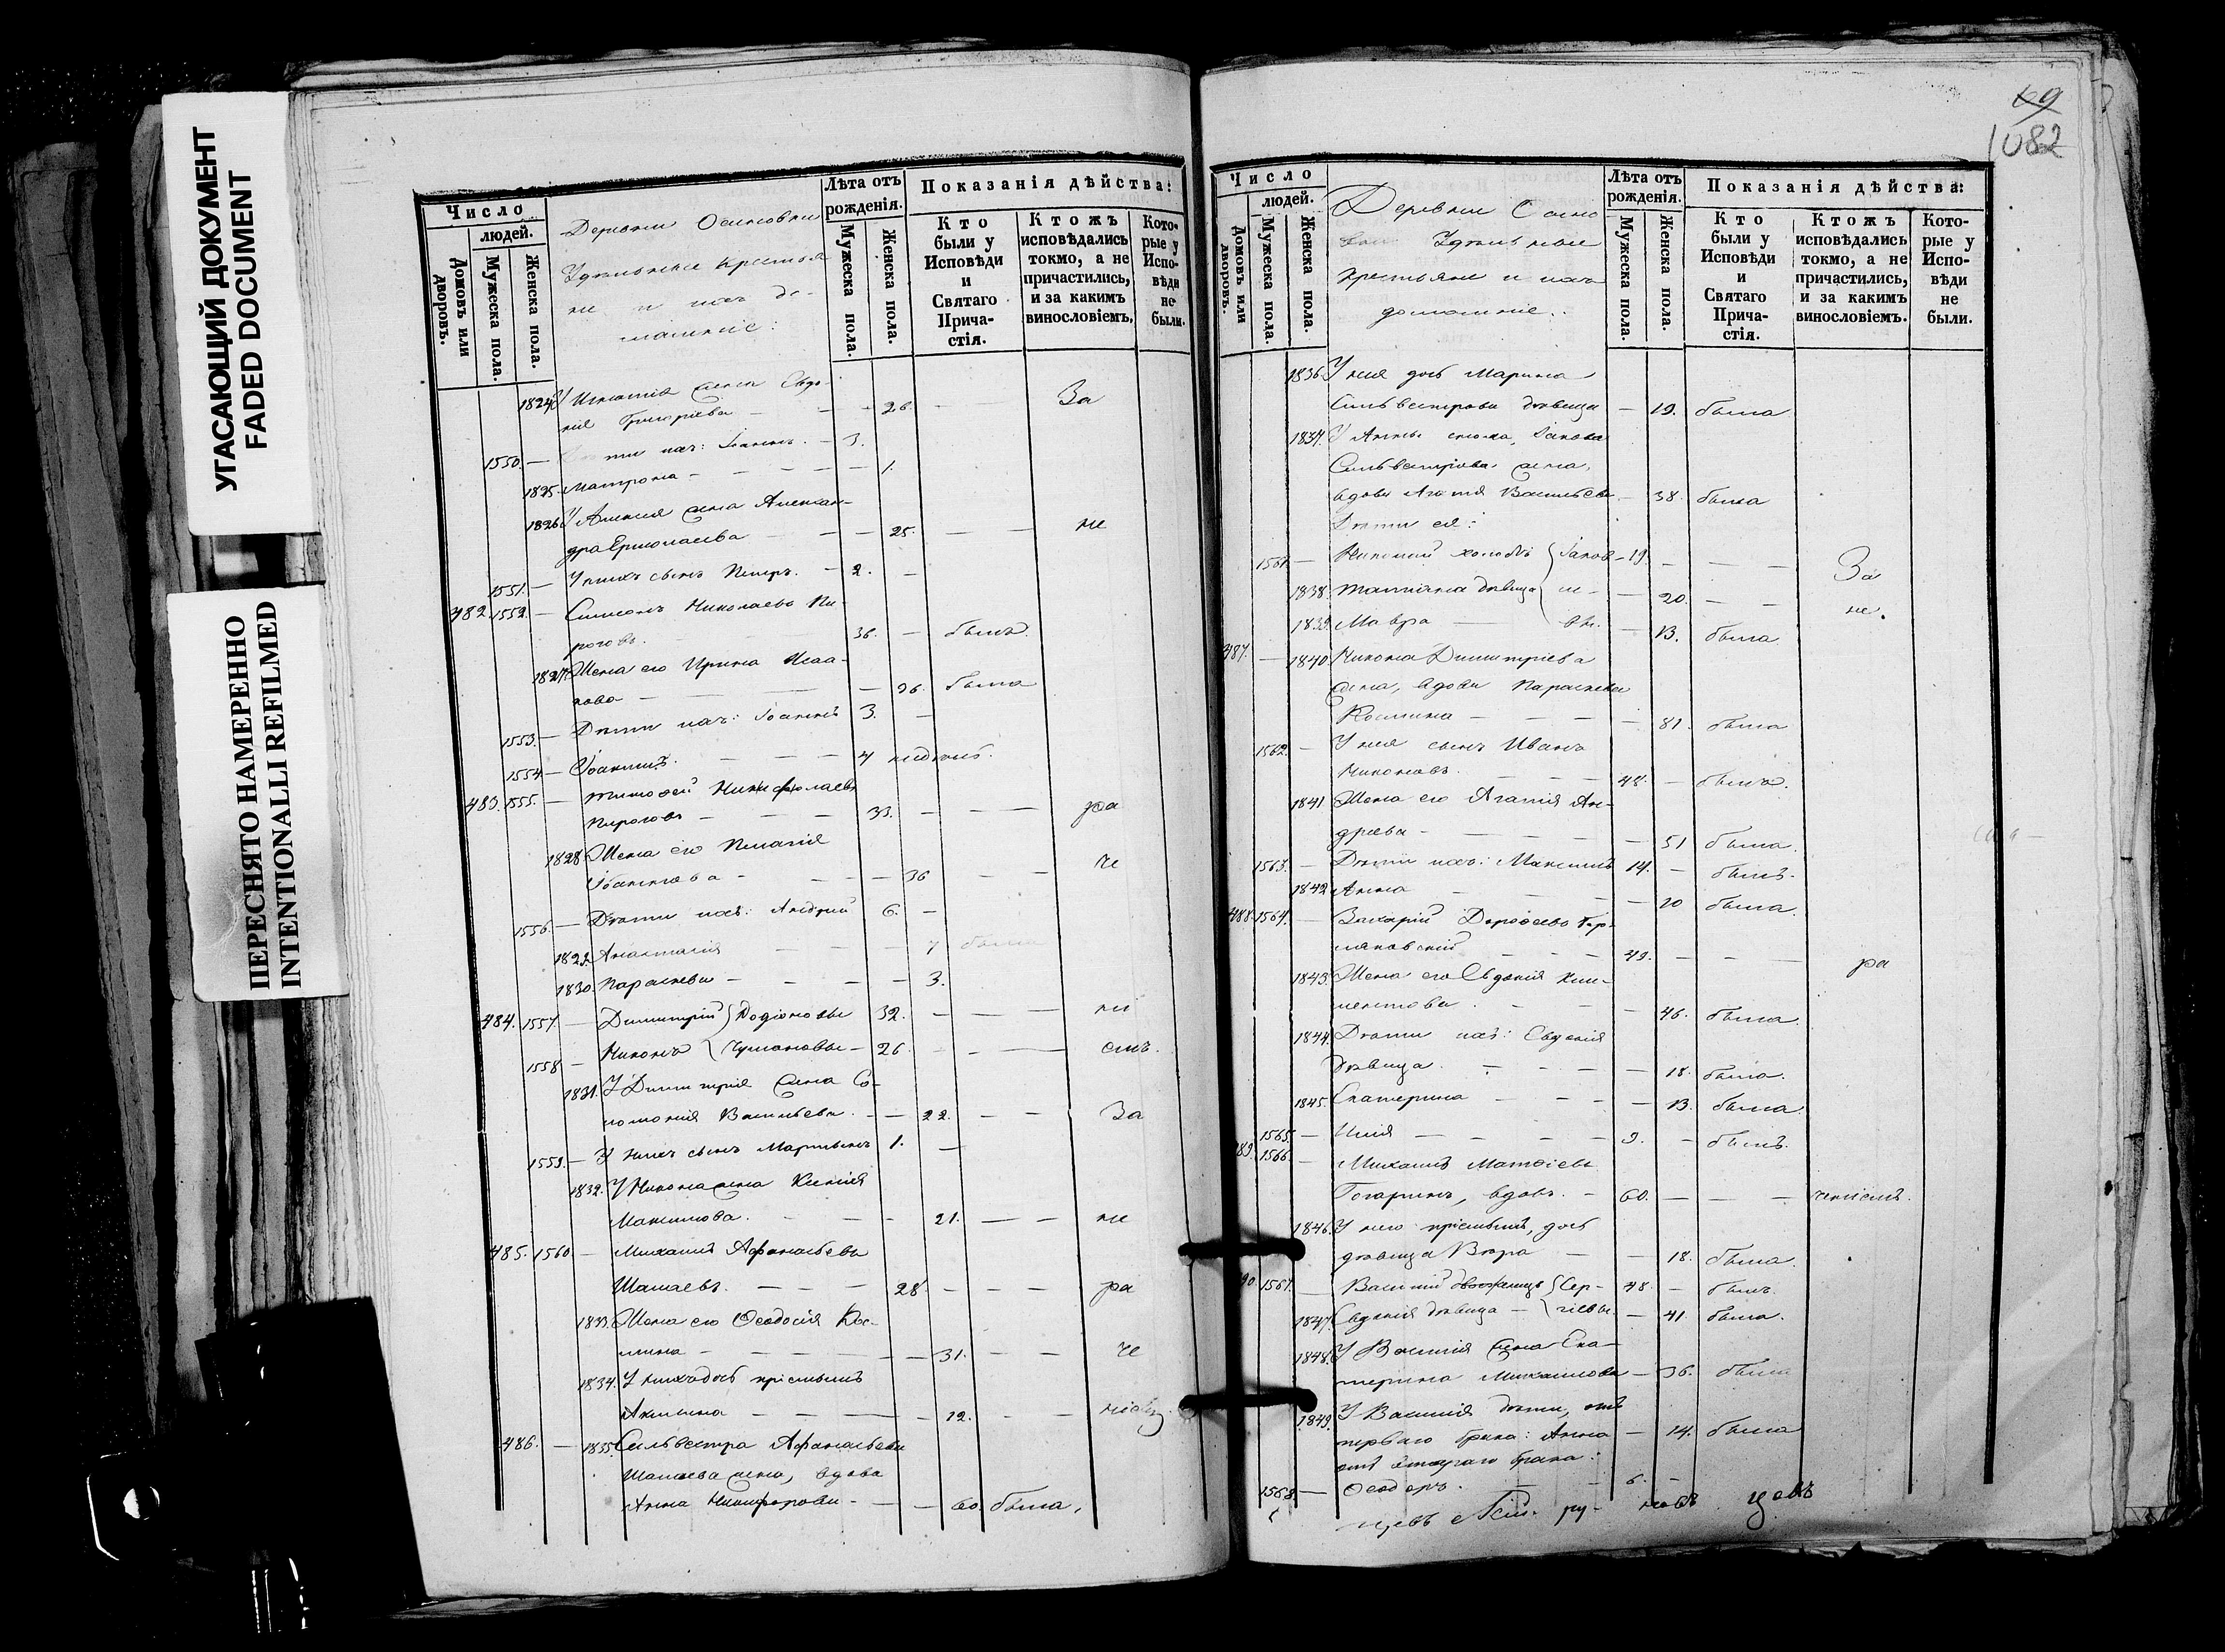 УГАСАЮЩИЙ ДОКУМЕНТ
FADED DOCUMENT
ПЕРЕСНЯТО НАМЕРЕННО
INTENTIONALLI REFILMED
Число
людей.
Домовъ или дворовъ.
Мужеска пола.
Женска пола.
Деревни Осиновки
Удѣльные крестья-
не и ихъ до-
машніе:
Лѣта отъ рожденія.
Мужеска пола.
Женска пола.
Показанія дѣйства:
Кто были у Исповѣди и Святаго Прича-стія.
Ктожъ исповѣдались токмо, а не причастились, и за какимъ винословіемъ.
Кото-рые у Испо-вѣди не были.
1824 У Игнатія жена Евдо-
кія Григорьева — — 26. — За
1550. — Дѣти ихъ: Іоаннъ. — 3.
1825. Матрона — — — 1.
1826 У Алексія жена Алексан-
дра Ермолаева — — 25. — не
1551. — У нихъ сынъ Петръ. — 2. —
482. 1552. — Симеонъ Николаевъ Пи-
роговъ. 36. — былъ.
1827. Жена его Ирина Исаа-
кова — — 26. была
1553. — Дѣти ихъ: Іоаннъ 3. —
1554. — Іоакимъ. — — 4 недѣль.
483. 1555. — Тимоѳей Николаевъ
Пироговъ — — — 33. — — ра
1828 Жена его Пелагія
Іоаннова — — — 36 — — че
1556. — Дѣти ихъ: Андрей 6. —
1829. Анастасія — — — 7 была
1830. Параскева — — — 3.
484. 1557. — Димитрій Родіоновы 32. — — ні
1558 — Никонъ — 26. — — емъ.
1831. У Димитрія жена Со-
ломонія Васильева. — — 22. — — За
1559. — У нихъ сынъ Мартинъ 1. —
1832. У Никона жена Ксенія
Максимова. — — 21. — — не
485. 1560 — Михаилъ Аѳанасьевъ
Шашаевъ. — — — 28. — — — ра
1833. Жена его Ѳеодосія Кос-
мина — — — — 31. — — че
1834. У нихъ дочь пріемышъ
Акилина — — — 12. — —
486. — 1835. Сильвестра Аѳанасьева
Шашаева жена, вдова
Анна Никифорова — — 60. была.
69
1082
Число
людей.
Домовъ или дворовъ.
Мужеска пола.
Женска пола.
Деревни Осино
вки Удѣльные
крестьяне и ихъ
домашніе.
Лѣта отъ рожденія.
Мужеска пола.
Женска пола.
Показанія дѣйства:
Кто были у Исповѣди и Святаго Прича-стія.
Ктожъ исповѣдались токмо, а не причастились, и за какимъ винословіемъ.
Кото-рые у Испо-вѣди не были.
1836. У нея дочь Марина
Сильвестрова дѣвица — 19. была
1837. У Анны сноха, Іакова
Сильвестрова жена,
вдова Агафія Васильева — 38. была
Дѣти ея:
1561. — Николай холостъ Іаков- 19. — — — За
1838. Татіана дѣвица — 20. — — не.
1839. Мавра — вы. — 13. была
487. — 1840. Никона Димитріева
жена, вдова Параскева
Космина — — — — 81. была
1562. — У нея сынъ Иванъ
Никоновъ. — — — 48. — былъ.
1841 Жена его Агафія Ан-
дреева — — — — — 51 была.
1563. — Дѣти ихъ: Максимъ 14. — былъ.
1842 Анна — — — — 20 была.
488. 1564. — Захарій Дороѳеевъ
49. — — — ра
1843. Жена его Евдокія Кли-
ментова. — — — 46. была.
1844. Дѣти ихъ: Евдокія
дѣвица. — — — — 18. была.
1845. Екатерина — — — — 13. была.
1565. — Илія — — — — 9. — былъ.
89. 1566. — Михаилъ Матѳіевъ
Гагаринъ, вдовъ. — 60. — — —
1846. У него пріемышъ, дочь
дѣвица Вѣра — — 18. была.
90. 1567. — Василій Сер- 48. — былъ.
1847. Евдокія дѣвица — гіевы. — 41. была.
1848. У Василія жена Ека-
терина Михаилова — 36. была
1849. У Василія дѣти, отъ
перваго брака: Анна — 14. была
отъ втораго брака:
1568. — Ѳеодоръ. — 6. —